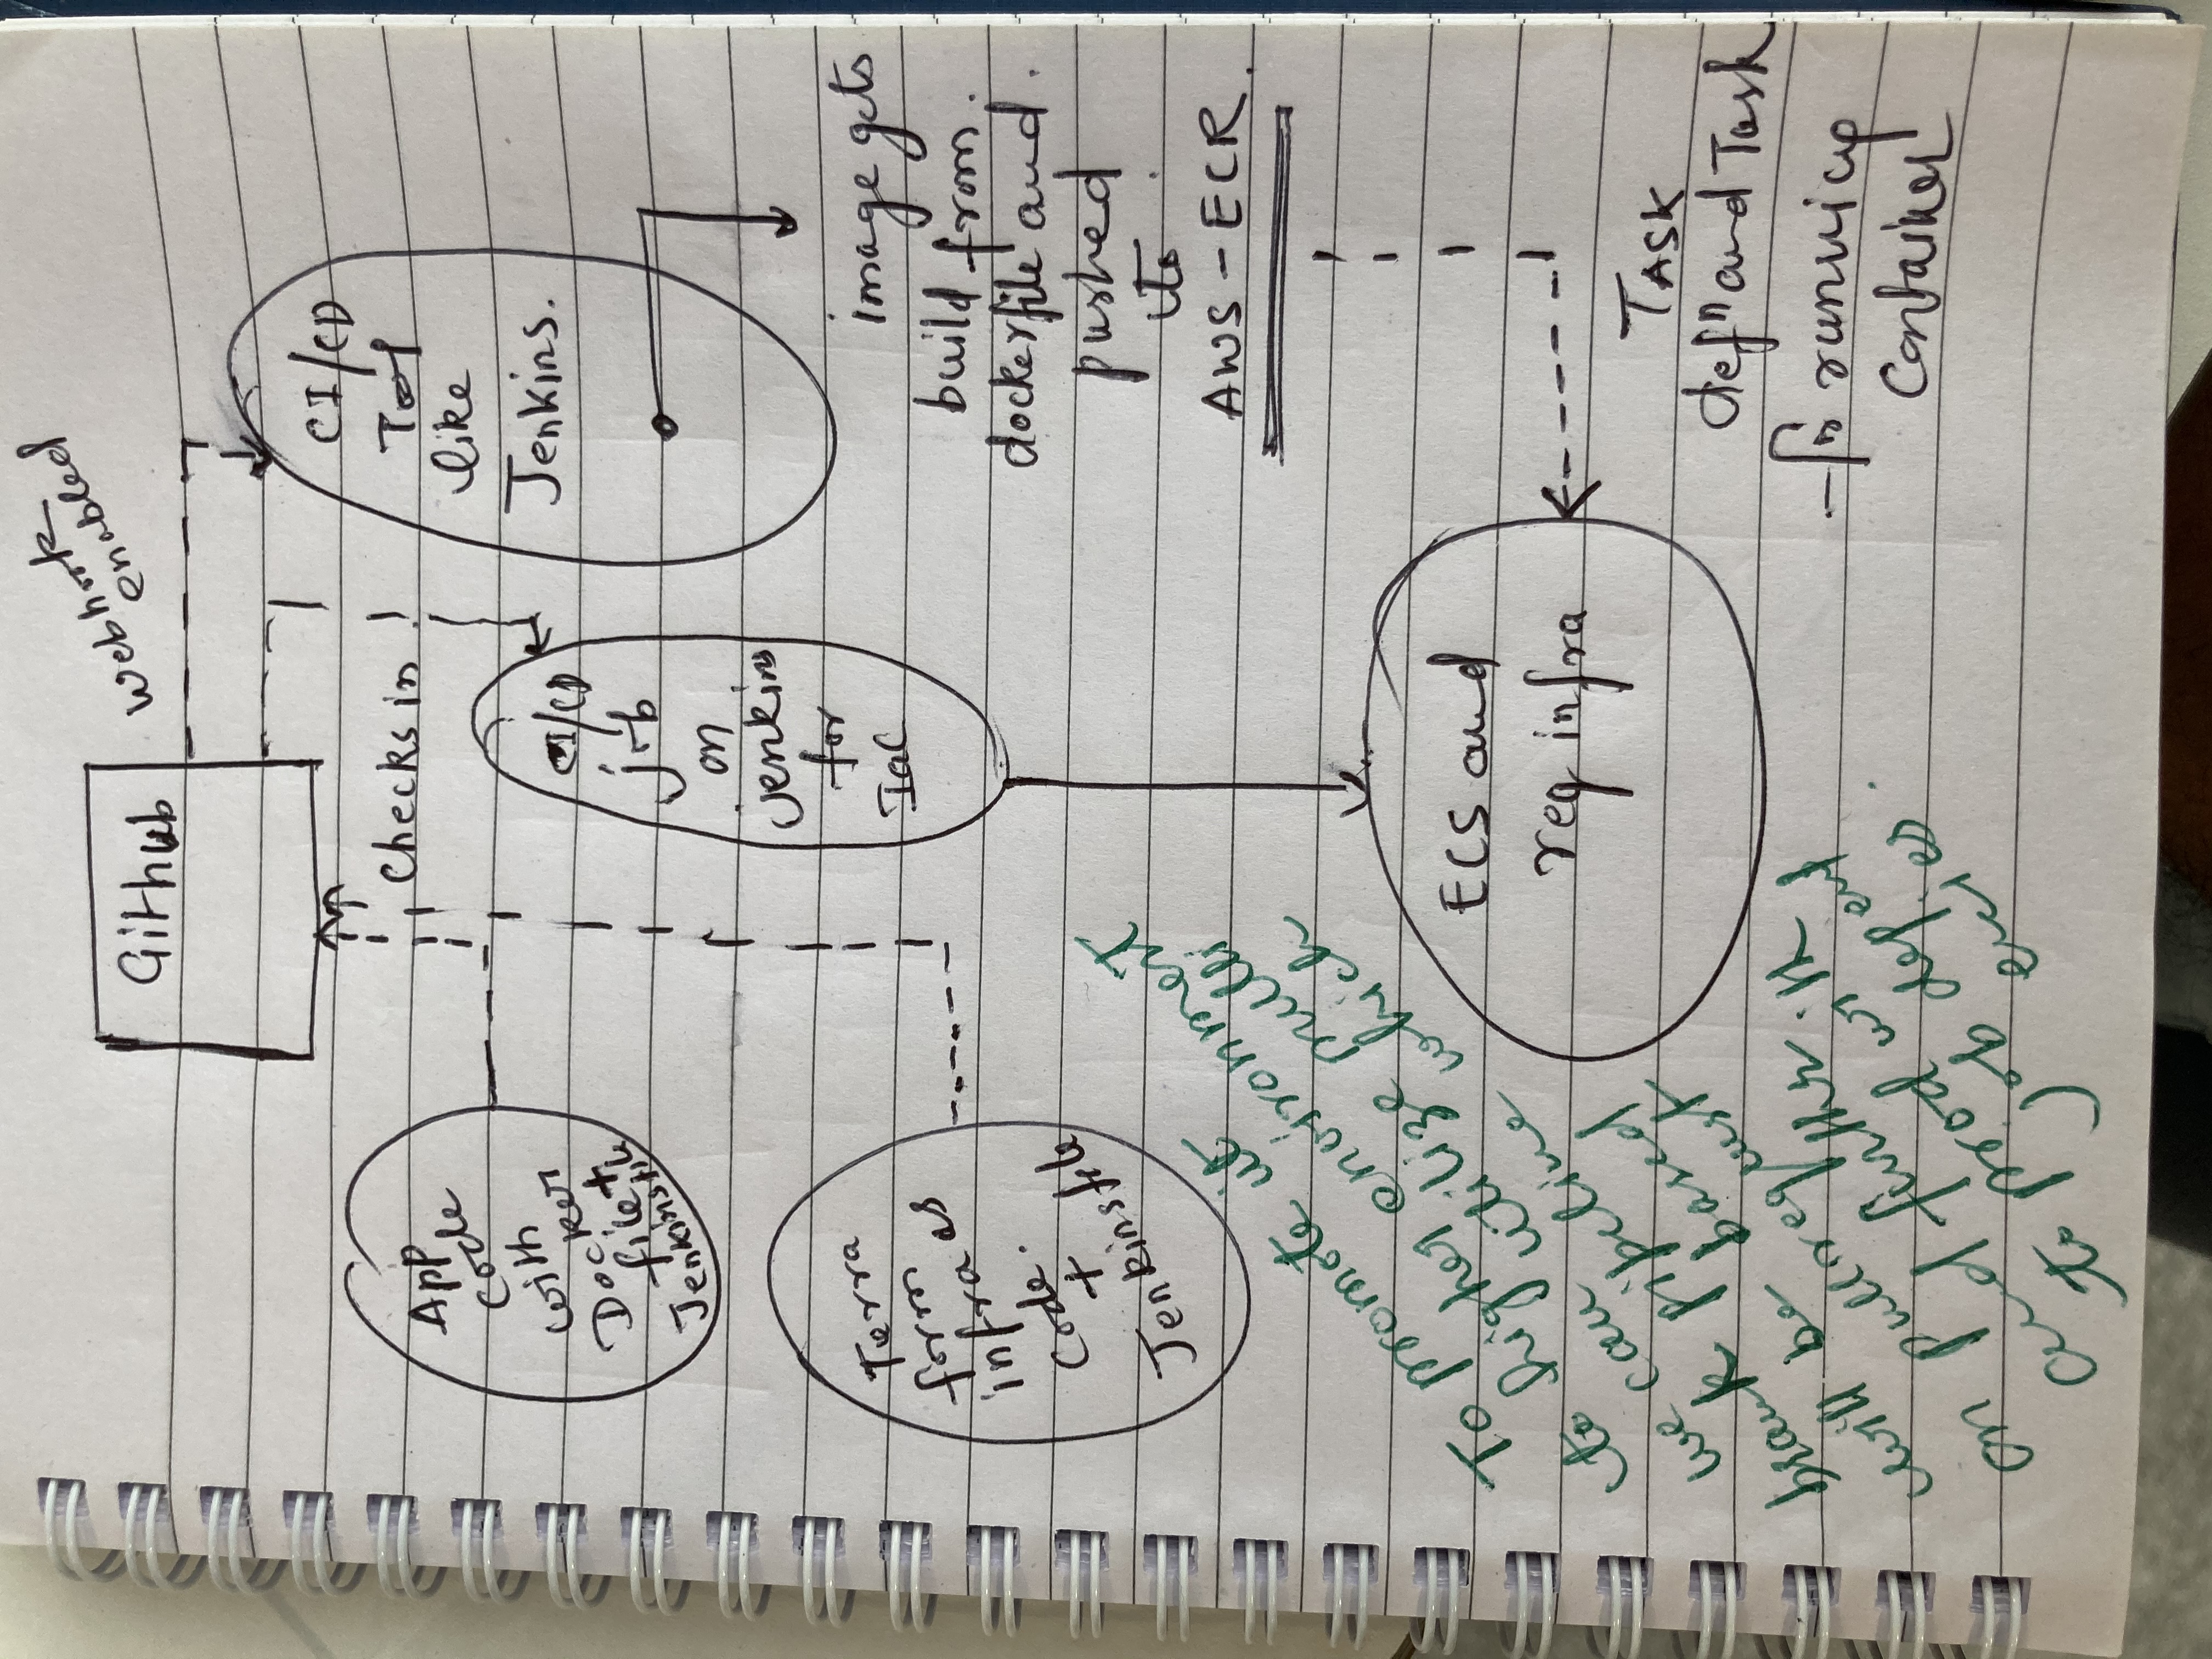 Github
Webhook
enabled
Checks in
App
code
with
Docker
file +
Jenkinsfile
CI/CD
Tool
like
Jenkins.
CI/CD
job
on
jenkins
for
IaC
Terra
form
infra as
code.
+
Jenkinsfile
image gets
build from.
dockerfile and.
pushed
to
AWS - ECR.
ECS and
req infra
TASK
defn and Task
- for running
Container
To promote it
to higher environment
we can utilize multi
branch pipeline which
will be based
on pull request
and further.
to prod with
job depend
encies.